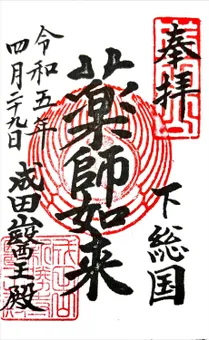 奉拝
下総国
薬師如来
成田山醫王殿
令和五年
四月二十九日